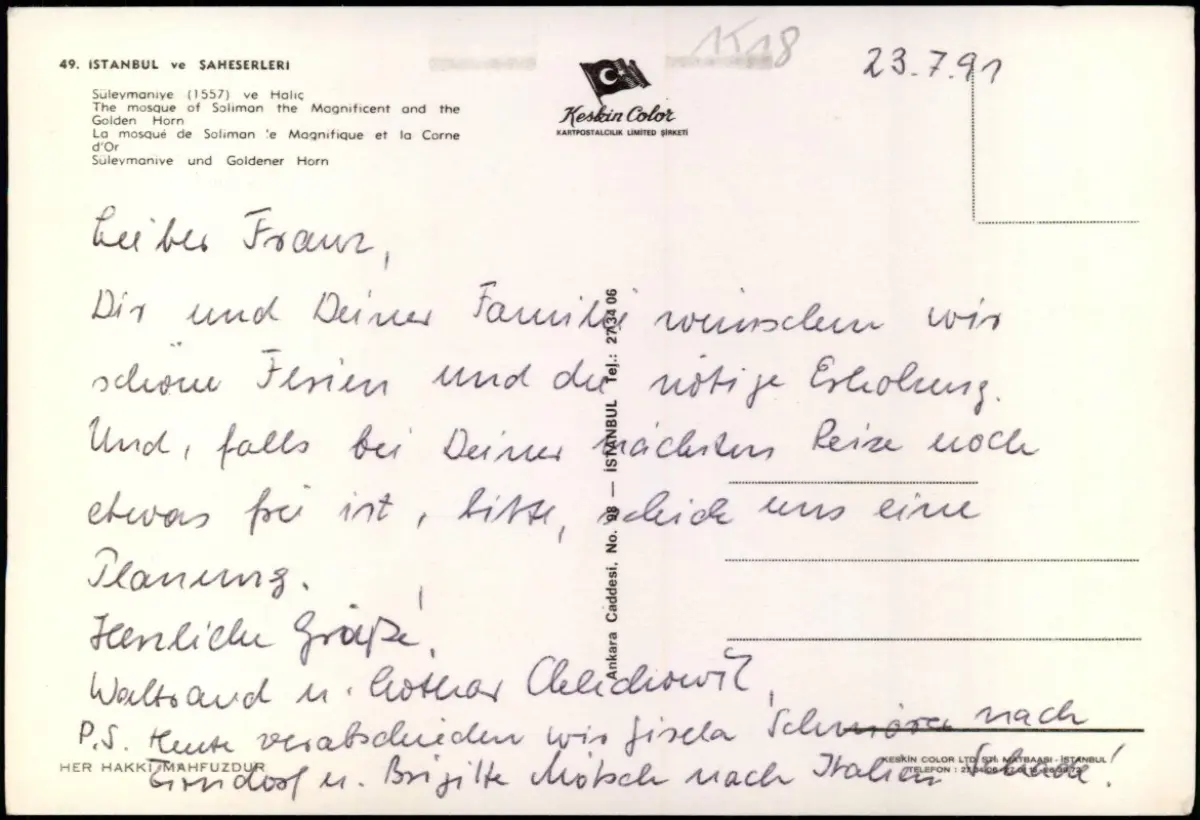 49. İSTANBUL ve ŞAHESERLERİ
Süleymaniye (1557) ve Haliç
The mosque of Soliman the Magnificent and the
Golden Horn
La mosqué de Soliman 'e Magnifique et la Corne
d'Or
Süleymaniye und Goldener Horn
Keskin Color
KARTPOSTALCILIK LİMİTED ŞİRKETİ
1518
23.7.91
Lieber Franz,
Dir und Deiner Familie wünschen wir
schöne Ferien und die nötige Erholung.
Und, falls bei Deiner nächsten Reise noch
etwas frei ist, bitte, schick uns eine
Planung.
Herzliche Grüße!
Waltraud u. Lothar
P.S. Heute verabschieden wir Gisela nach
u. Brigitte Mötsch nach Italien Schade!
Ankara Caddesi, No. 98 — İSTANBUL Tel.: 27 34 06
HER HAKKI MAHFUZDUR
KESKİN COLOR LTD. ŞTİ. MATBAASI - İSTANBUL